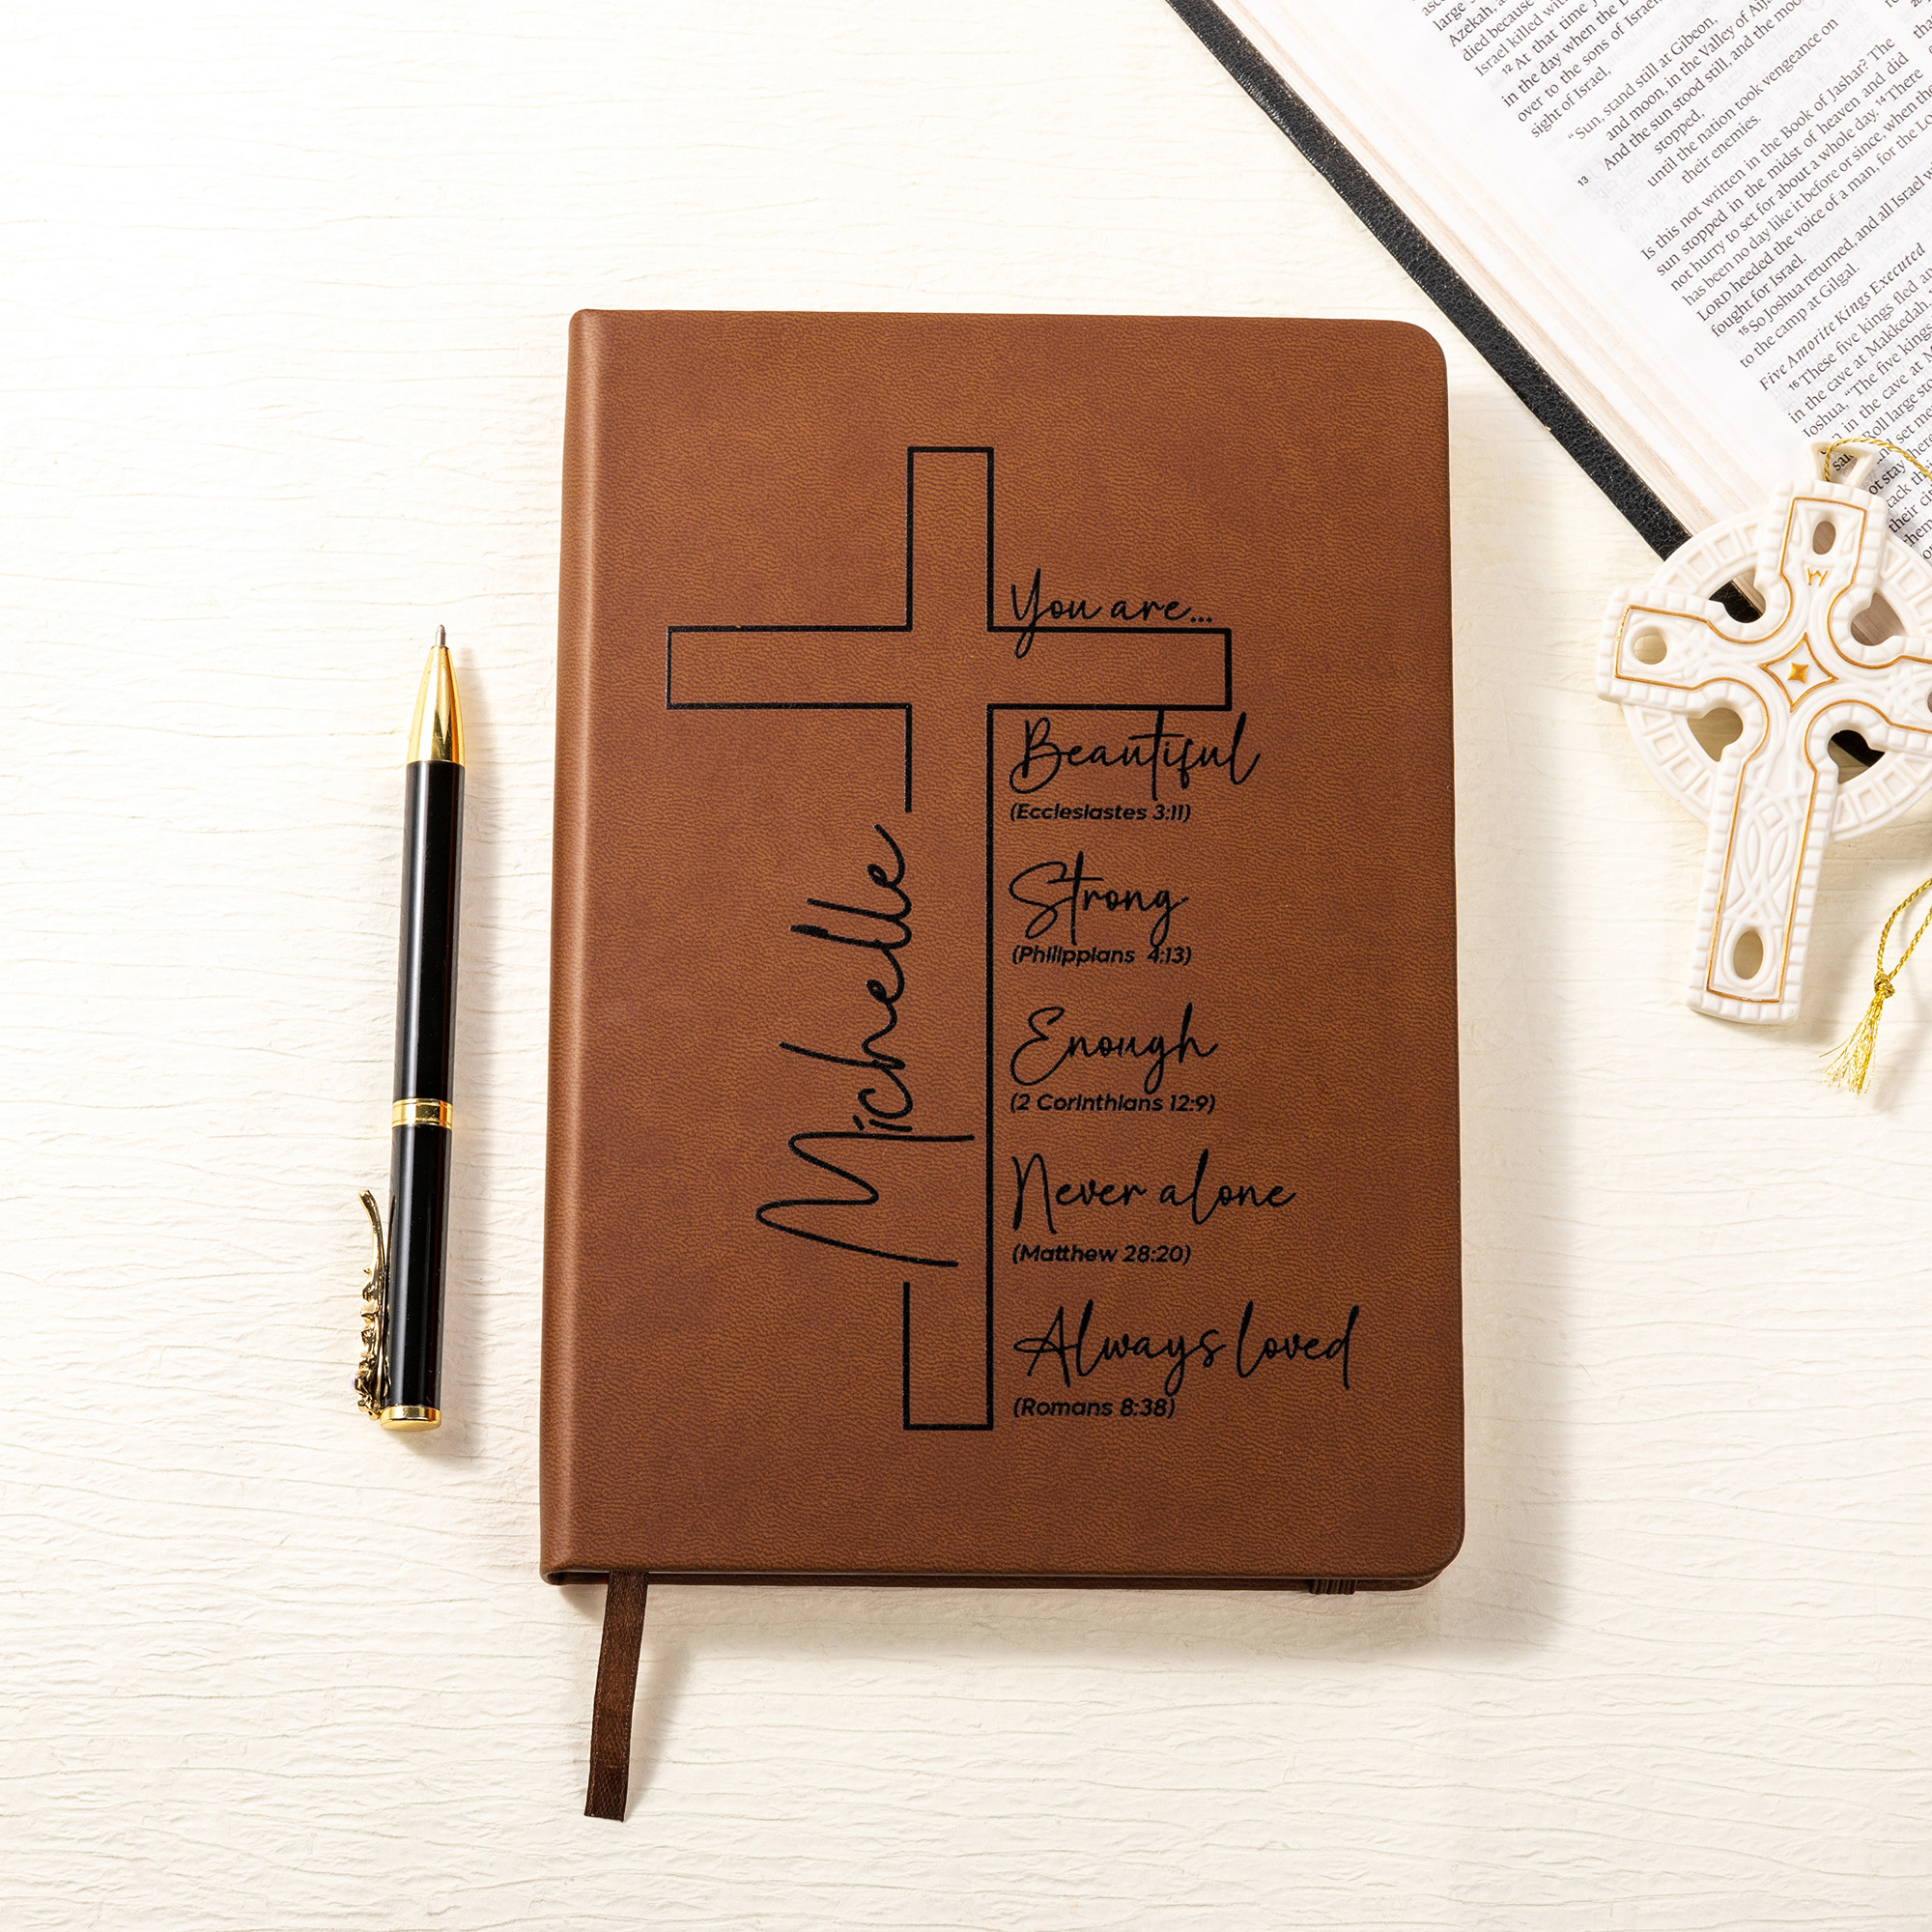 Michelle
You are...
Beautiful
(Ecclesiastes 3:11)
Strong
(Philippians 4:13)
Enough
(2 Corinthians 12:9)
Never alone
(Matthew 28:20)
Always loved
(Romans 8:38)
large s
Azekah,
died because
Israel killed wit
12 At that time J
in the day when the L
over to the sons of Israel,
sight of Israel,
"Sun, stand still at Gibeon,
and moon, in the Valley of Aij
13 And the sun stood still, and the moo
stopped,
until the nation took vengeance on
their enemies.
Is this not written in the Book of Jashar? The
sun stopped in the midst of heaven and did
not hurry to set for about a whole day. 14 There
has been no day like it before or since, when the
LORD heeded the voice of a man, for the Lo
fought for Israel.
15 So Joshua returned, and all Israel w
to the camp at Gilgal.
Five Amorite Kings Executed
16 These five kings fled an
in the cave at Makkedah.
Joshua, "The five kings
in the cave at M
Roll large sto
set me
ot stay